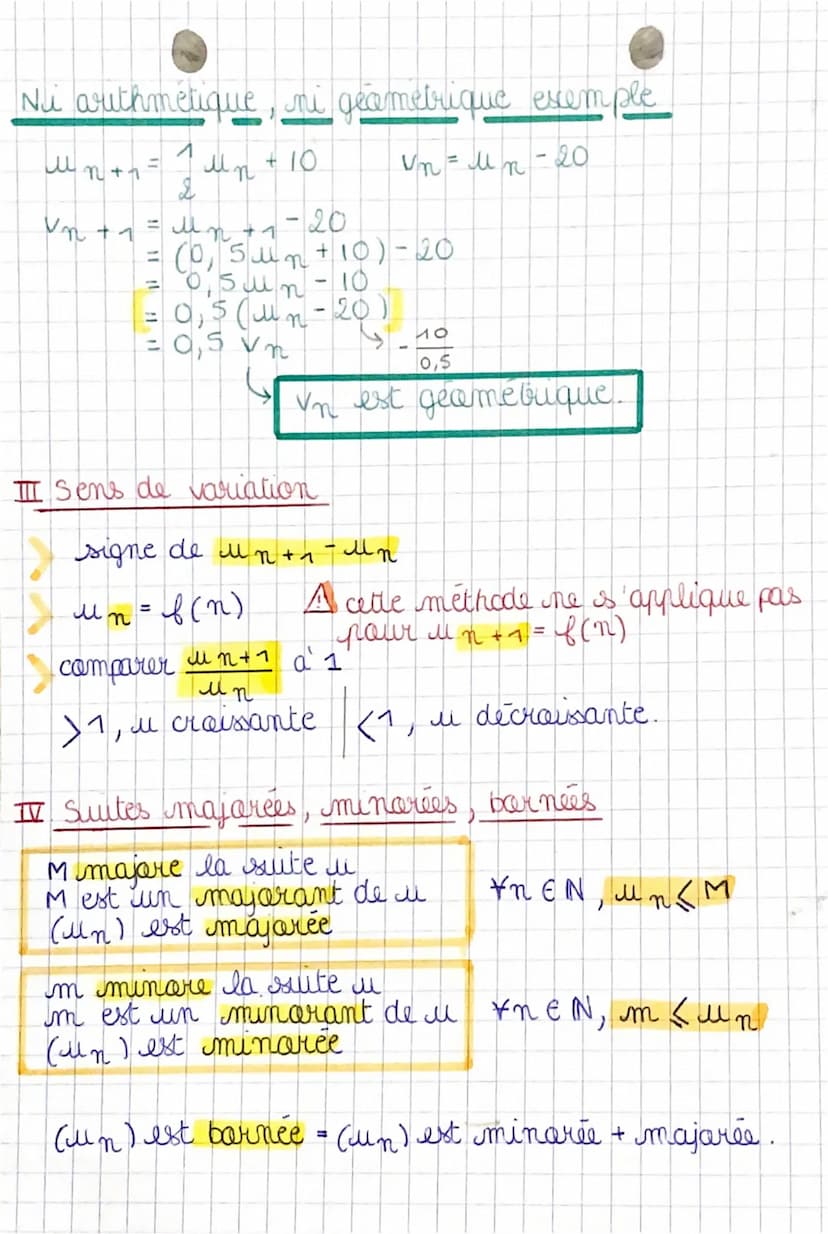 Ni arithmétique, ni géométrique exemple
u n+1 = 1/2 u n + 10    Vn = u n - 20
Vn+1 = u n+1 - 20
= (0,5 u n + 10) - 20
= 0,5 u n - 10
= 0,5 (u n - 20)
= 0,5 Vn    - 10/0,5
Vn est géométrique.
III Sens de variation
signe de u n+1 - u n
u n = f(n)    ⚠ cette méthode ne s'applique pas
pour u n+1 = f(n)
comparer u n+1 / u n à 1
>1, u croissante | <1, u décroissante.
IV Suites majorées, minorées, bornées
M majore la suite u
M est un majorant de u    ∀n ∈ ℕ, u n ⩽ M
(u n) est majorée
m minore la suite u
m est un minorant de u    ∀n ∈ ℕ, m ⩽ u n
(u n) est minorée
(u n) est bornée = (u n) est minorée + majorée.